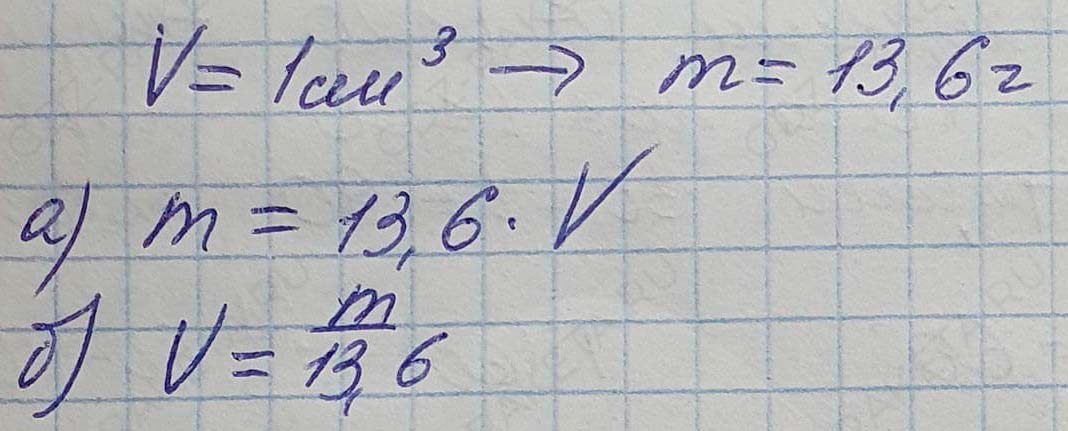 V = 1см³ → m = 13,6г
а) m = 13,6 · V
б) V = m/13,6